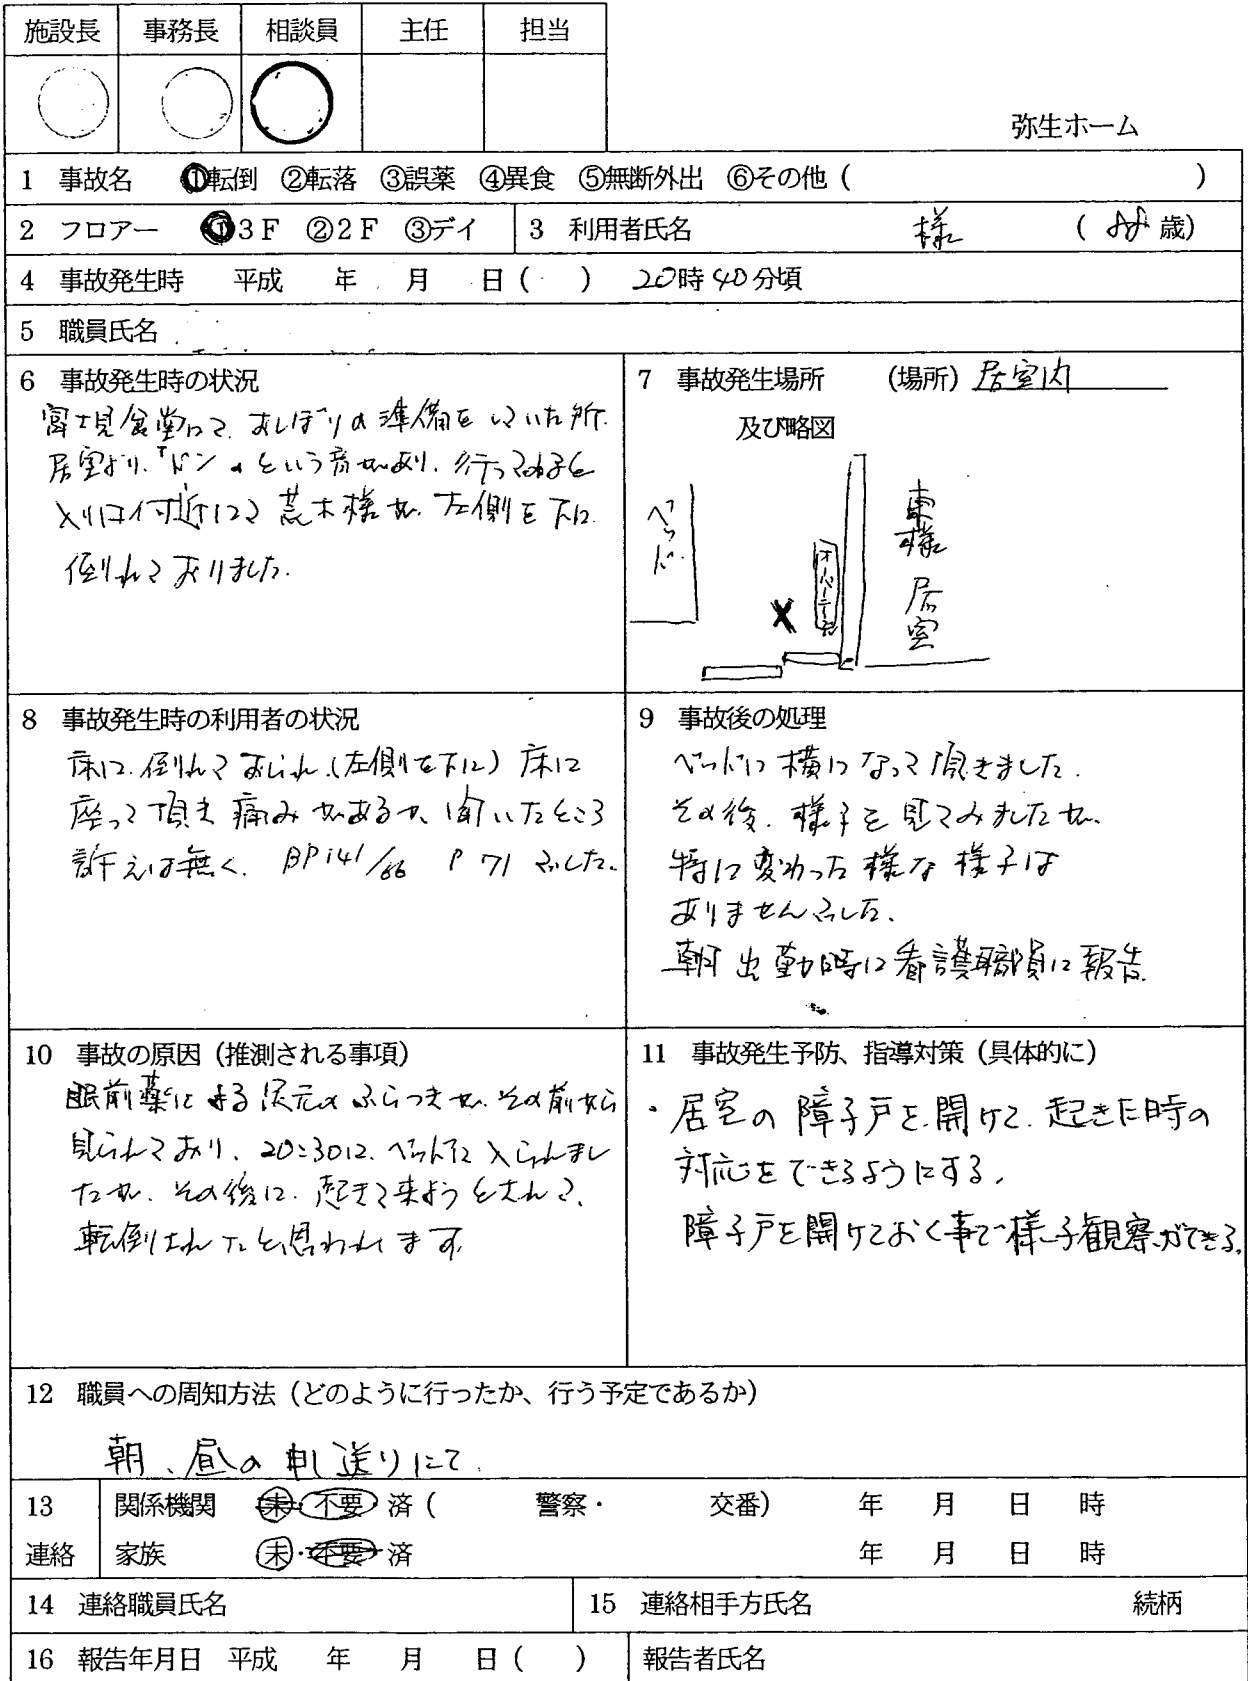 施設長 事務長 相談員 主任 担当
弥生ホーム
1 事故名 ①転倒 ②転落 ③誤薬 ④異食 ⑤無断外出 ⑥その他 ( )
2 フロアー ①3F ②2F ③デイ 3 利用者氏名 様 ( 88歳)
4 事故発生時 平成 年 月 日 ( ) 20時40分頃
5 職員氏名
6 事故発生時の状況
富士見食堂にて、おしぼりの準備をしていた所、
居室より、「ドン」という音があり、行ってみると
入り口付近にて荒木様が、左側を下に
倒れておりました。
7 事故発生場所 (場所) 居室内
及び略図
ベッド
オーバーテーブル
様 居室
8 事故発生時の利用者の状況
床に倒れておられ、(左側を下に) 床に
座って頂き痛みがあるか、聞いたところ
訴えは無く、BP141/66 P 71 でした。
9 事故後の処理
ベッドに横になって頂きました。
その後、様子を見てみましたが、
特に変わった様な様子は
ありませんでした。
朝出勤時に看護職員に報告
10 事故の原因(推測される事項)
眠前薬による足元のふらつきが、その前から
見られており、20:30に、ベッドに入られまし
たが、その後に、起きて来ようとされて、
転倒されたと思われます。
11 事故発生予防、指導対策(具体的に)
・居室の障子戸を開けて、起きた時の
対応をできるようにする。
障子戸を開けておく事で様子観察ができる。
12 職員への周知方法(どのように行ったか、行う予定であるか)
朝、昼の申し送りにて
13 関係機関 未・不要 済 ( 警察・ 交番) 年 月 日 時
連絡 家族 未・不要 済 年 月 日 時
14 連絡職員氏名 15 連絡相手方氏名 続柄
16 報告年月日 平成 年 月 日 ( ) 報告者氏名